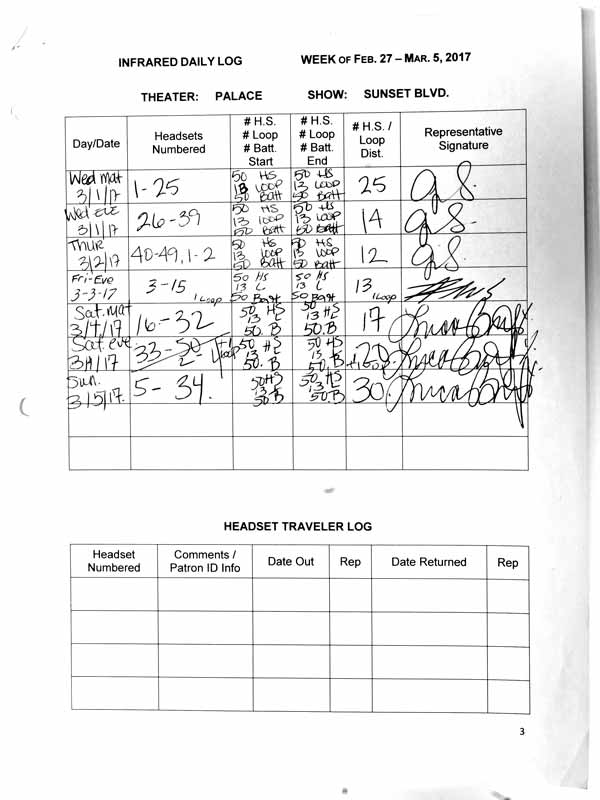 INFRARED DAILY LOG WEEK OF FEB. 27 – MAR. 5, 2017
THEATER: PALACE SHOW: SUNSET BLVD.
Day/Date Headsets Numbered # H.S. # Loop # Batt. Start # H.S. # Loop # Batt. End # H.S. / Loop Dist. Representative Signature
Wed mat 3/1/17 1-25 50 HS 13 LOOP 50 Batt 50 HS 13 LOOP 50 Batt 25 G.S.
Wed eve 3/1/17 26-39 50 HS 13 LOOP 50 Batt 50 HS 13 LOOP 50 Batt 14 G.S.
Thur 3/2/17 40-49, 1-2 50 HS 13 LOOP 50 Batt 50 HS 13 LOOP 50 Batt 12 G.S.
Fri-Eve 3-3-17 3-15 1 Loop 50 HS 13 L 50 Batt 50 HS 13 L 50 Batt 13 1 Loop
Sat. mat 3/4/17 16-32 50 HS 13 L 50. B 50 13 HS 50. B 17
Sat. eve 3/4/17 33-50 2-4 +1 Loop 50 HS 13 L 50. B 50 HS 13 L 50. B
Sun. 3/5/17. 5- 34. 50 HS 13 50. B 50 HS 13 50. B 30
HEADSET TRAVELER LOG
Headset Numbered Comments / Patron ID Info Date Out Rep Date Returned Rep
3